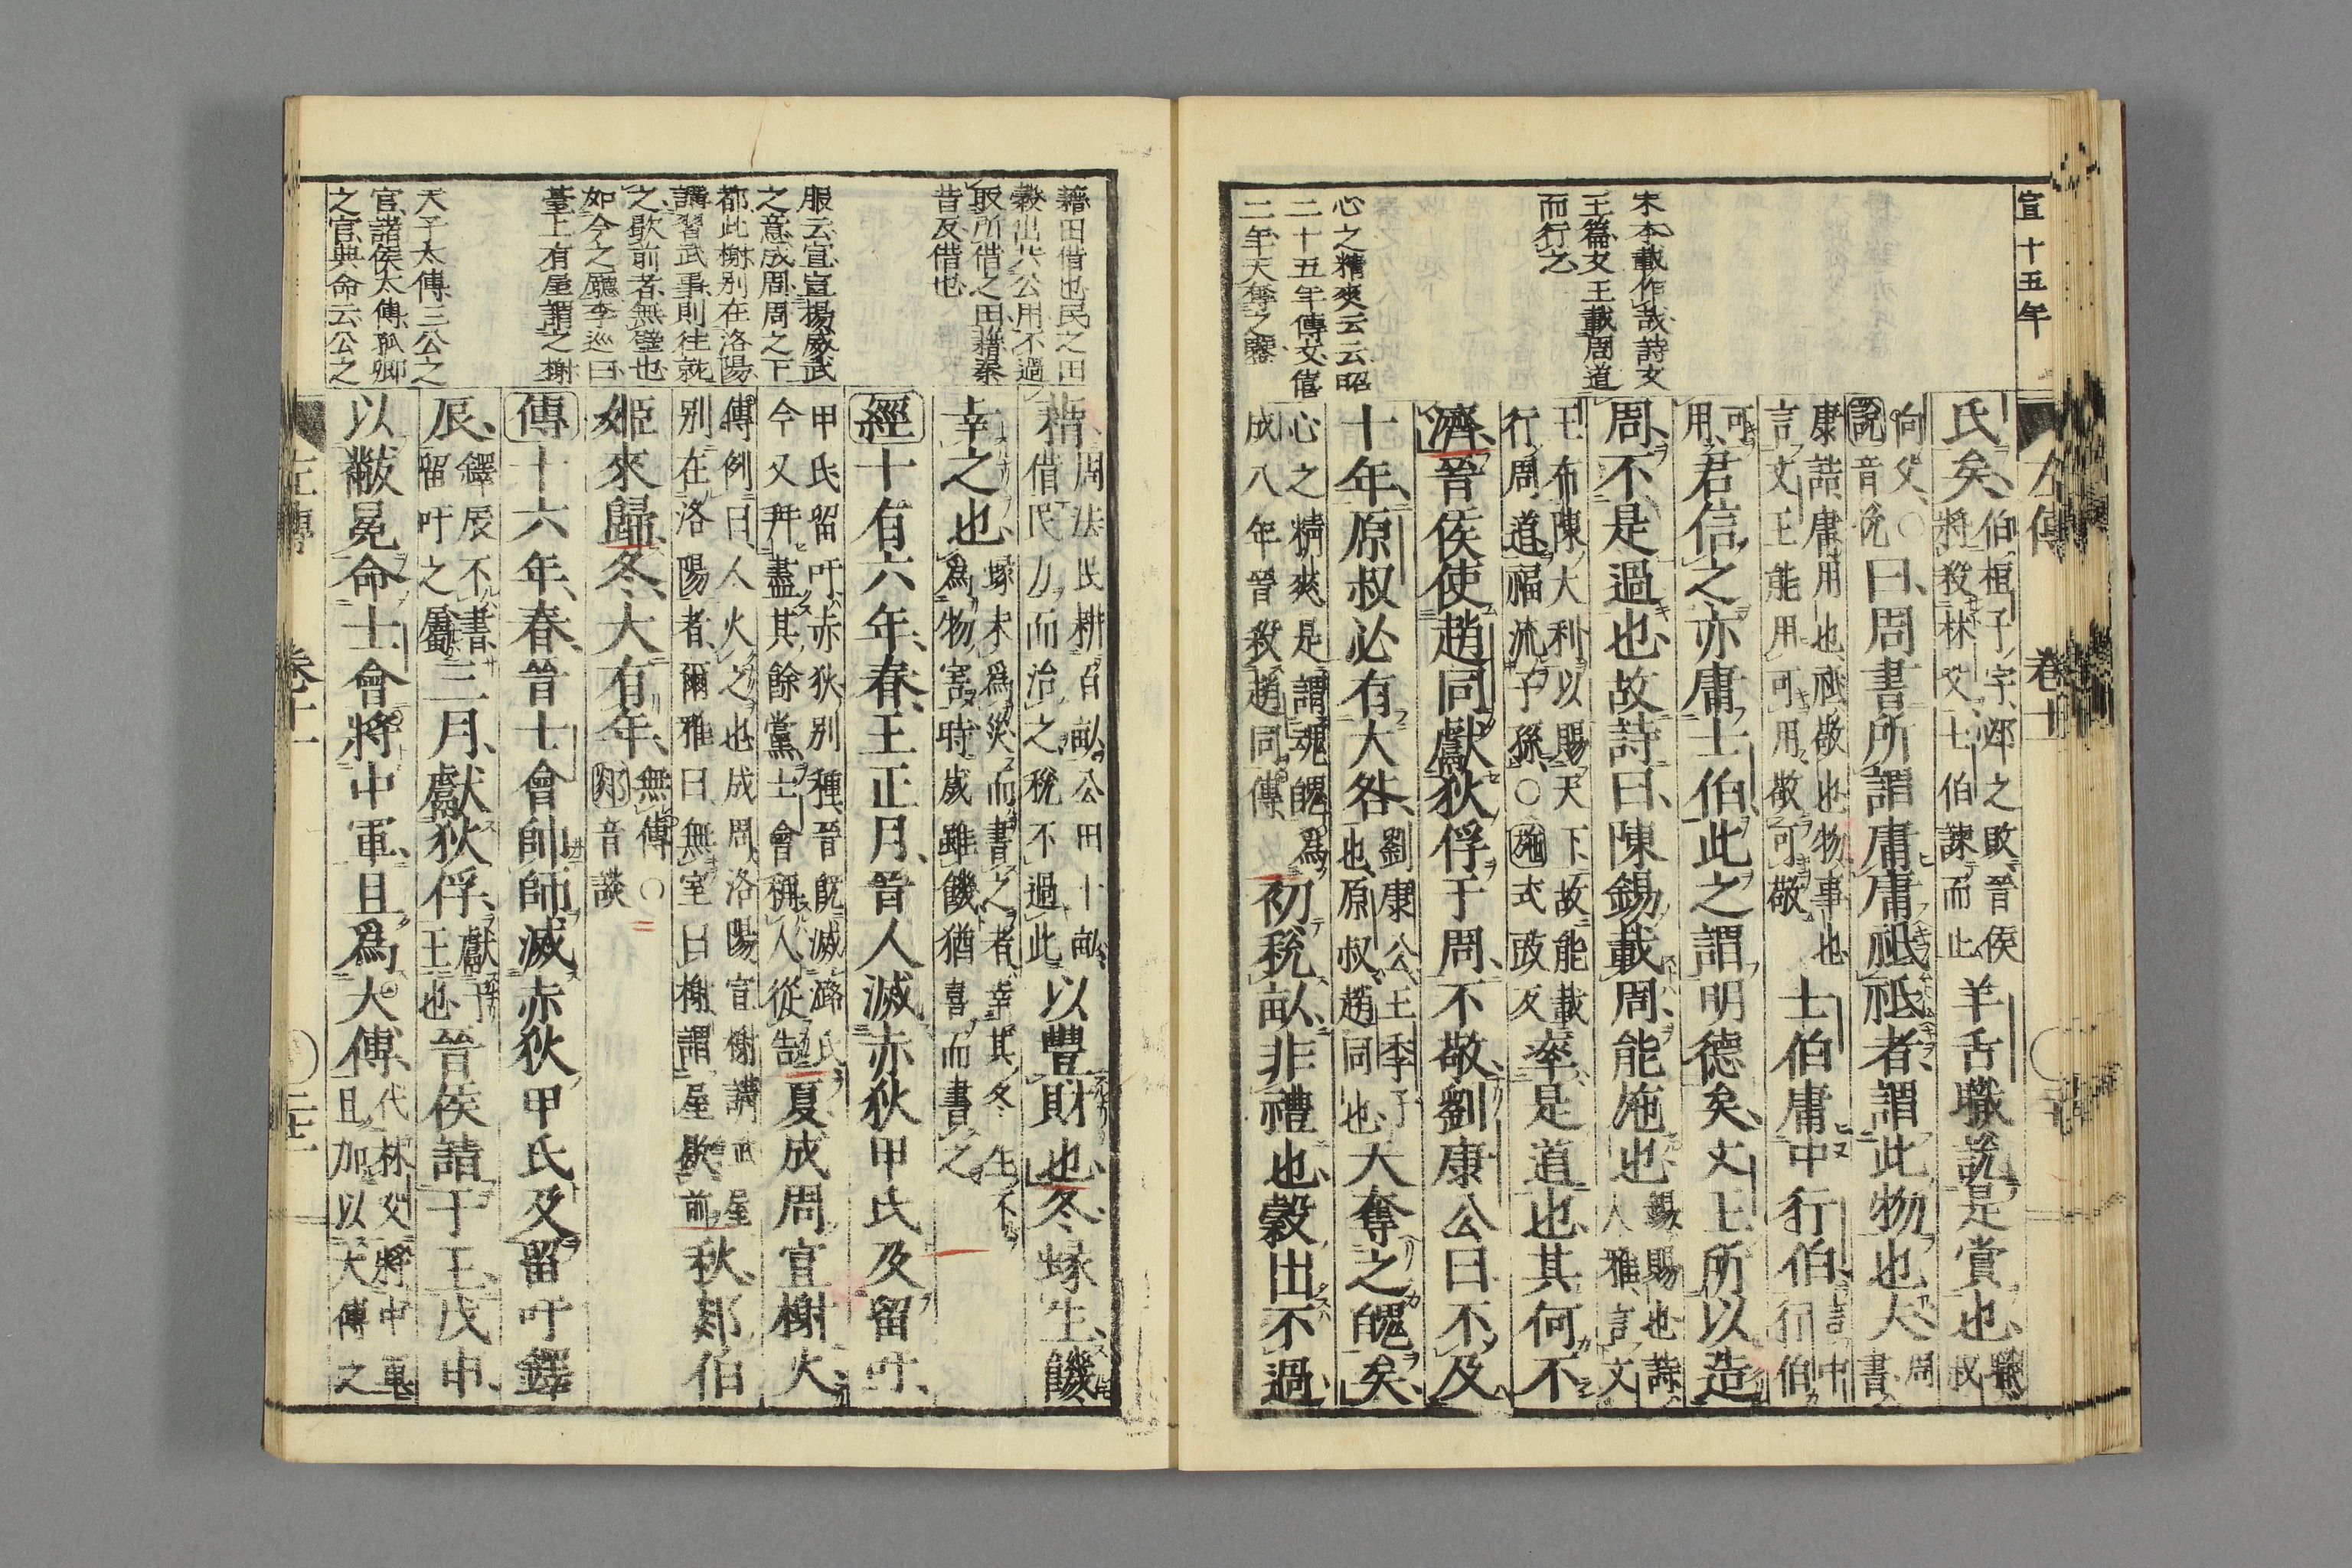 宣十五年
左傳 卷十一
宋本載作哉詩文
王篇文王載周道
而行之
心之精爽云云昭
二十五年傳文僖
二年天奪之鑒
氏矣伯桓子字邲之敗晉侯將殺林父士伯諫而止羊舌職說是賞也職叔
向父○說音悅曰周書所謂庸庸祗祗者謂此物也夫周書
康誥庸用也祗敬也物事也言文王能用可用敬可敬士伯庸中行伯言中行伯
可用君信之亦庸士伯此之謂明德矣文王所以造
周不是過也故詩曰陳錫載周能施也錫賜也詩大雅言文
王布陳大利以賜天下故能載行周道福流子孫○施式豉反率是道也其何不
濟晉侯使趙同獻狄俘于周不敬劉康公曰不及
十年原叔必有大咎劉康公王季子也原叔趙同也天奪之魄矣
心之精爽是謂魂魄爲成八年晉殺趙同傳初稅畝非禮也穀出不過
藉田借也民之田
穀出共公用不過
取所借之田藉秦
昔反借也
服云宣宣揚威武
之意成周周之下
都此榭別在洛陽
講習武事則往就
之歇前者無壁也
如今之廳李巡曰
臺上有屋謂之榭
天子太傅三公之
官諸侯太傅孤卿
之官典命云公之
藉周法民耕百畝公田十畝借民力而治之稅不過此以豐財也冬蝝生饑
幸之也蝝未爲災而書之者幸其冬生不爲物害時歲雖饑猶喜而書之
經十有六年春王正月晉人滅赤狄甲氏及留吁
甲氏留吁赤狄別種晉既滅潞氏今又幷盡其餘黨士會稱人從告夏成周宣榭火
傳例曰人火之也成周洛陽宣榭講武屋別在洛陽者爾雅曰無室曰榭謂屋歇前秋郯伯
姬來歸冬大有年無傳○郯音談
傳十六年春晉士會帥師滅赤狄甲氏及留吁鐸
辰鐸辰不書留吁之屬三月獻狄俘獻于王也晉侯請于王戊申
以黻冕命士會將中軍且爲大傅代林父將中軍且加以大傅之
左傳 卷十一